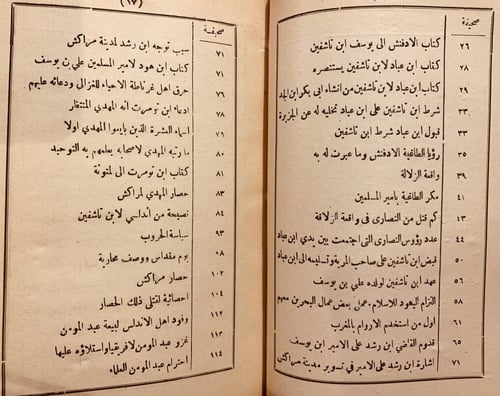 صحيفة
٢٦ كتاب الادفنش الى يوسف ابن تاشفين
٢٨ كتاب ابن عباد لابن تاشفين يستنصره
٢٩ كتاب ابن عباد لابن تاشفين من انشاء ابى بكر ابن الجد
٣٣ شرط ابن تاشفين على ابن عباد تخليه له عن الجزيرة
٣٣ قبول ابن عباد شرط ابن تاشفين
٣٥ رؤيا الطاغية الادفنش وما عبرت له به
٣٩ واقعة الزلاقة
٤١ مكر الطاغية بامير المسلمين
٤٣ كم قتل من النصارى فى واقعة الزلاقة
٤٤ عدد رؤوس النصارى التى اجتمعت بين يدي ابن عباد
قبض ابن تاشفين على صاحب المرية وتسليمه الى ابن عباد
٥٦ عهد ابن تاشفين لولده علي بن يوسف
٥٨ التزام اليهود للاسلام، عمل بعض عمال البحرين معهم
٦١ اول من استخدم الاروام بالمغرب
٦٥ قدوم القاضي ابن رشد على الامير ابن يوسف
٧١ اشارة ابن رشد على الامير فى تسوير مدينة مراكش
(١٧)
صحيفة
٧١ سبب توجه ابن رشد لمدينة مراكش
٧١ كتاب ابن هود لامير المسلمين علي بن يوسف
٧٦ حرق اهل غرناطة الاحياء للغزالى ودعائه عليهم
٧٨ ادعاء ابن تومرت انه المهدي المنتظر
٧٩ اسماء العشرة الذين بايعوا المهدي اولا
٨٠ ما رتبه المهدي لاصحابه يعلمهم به التوحيد
٨١ كتاب ابن تومرت الى لمتونة
٨٣ حصار المهدي لمراكش
٨٤ نصيحة من اندلسي لابن تاشفين
٩٣ سياسة الحروب
٥٨ يوم مقداس ووصف محاربة
١٠٢ حصار مراكش
١٠٤ احصائية لقتلى ذلك الحصار
١١٢ وفود اهل الاندلس لبيعة عبد المومن
١١٣ غزو عبد المومن لافريقيا واستلاؤه عليها
١١٤ احترام عبد المومن العلماء